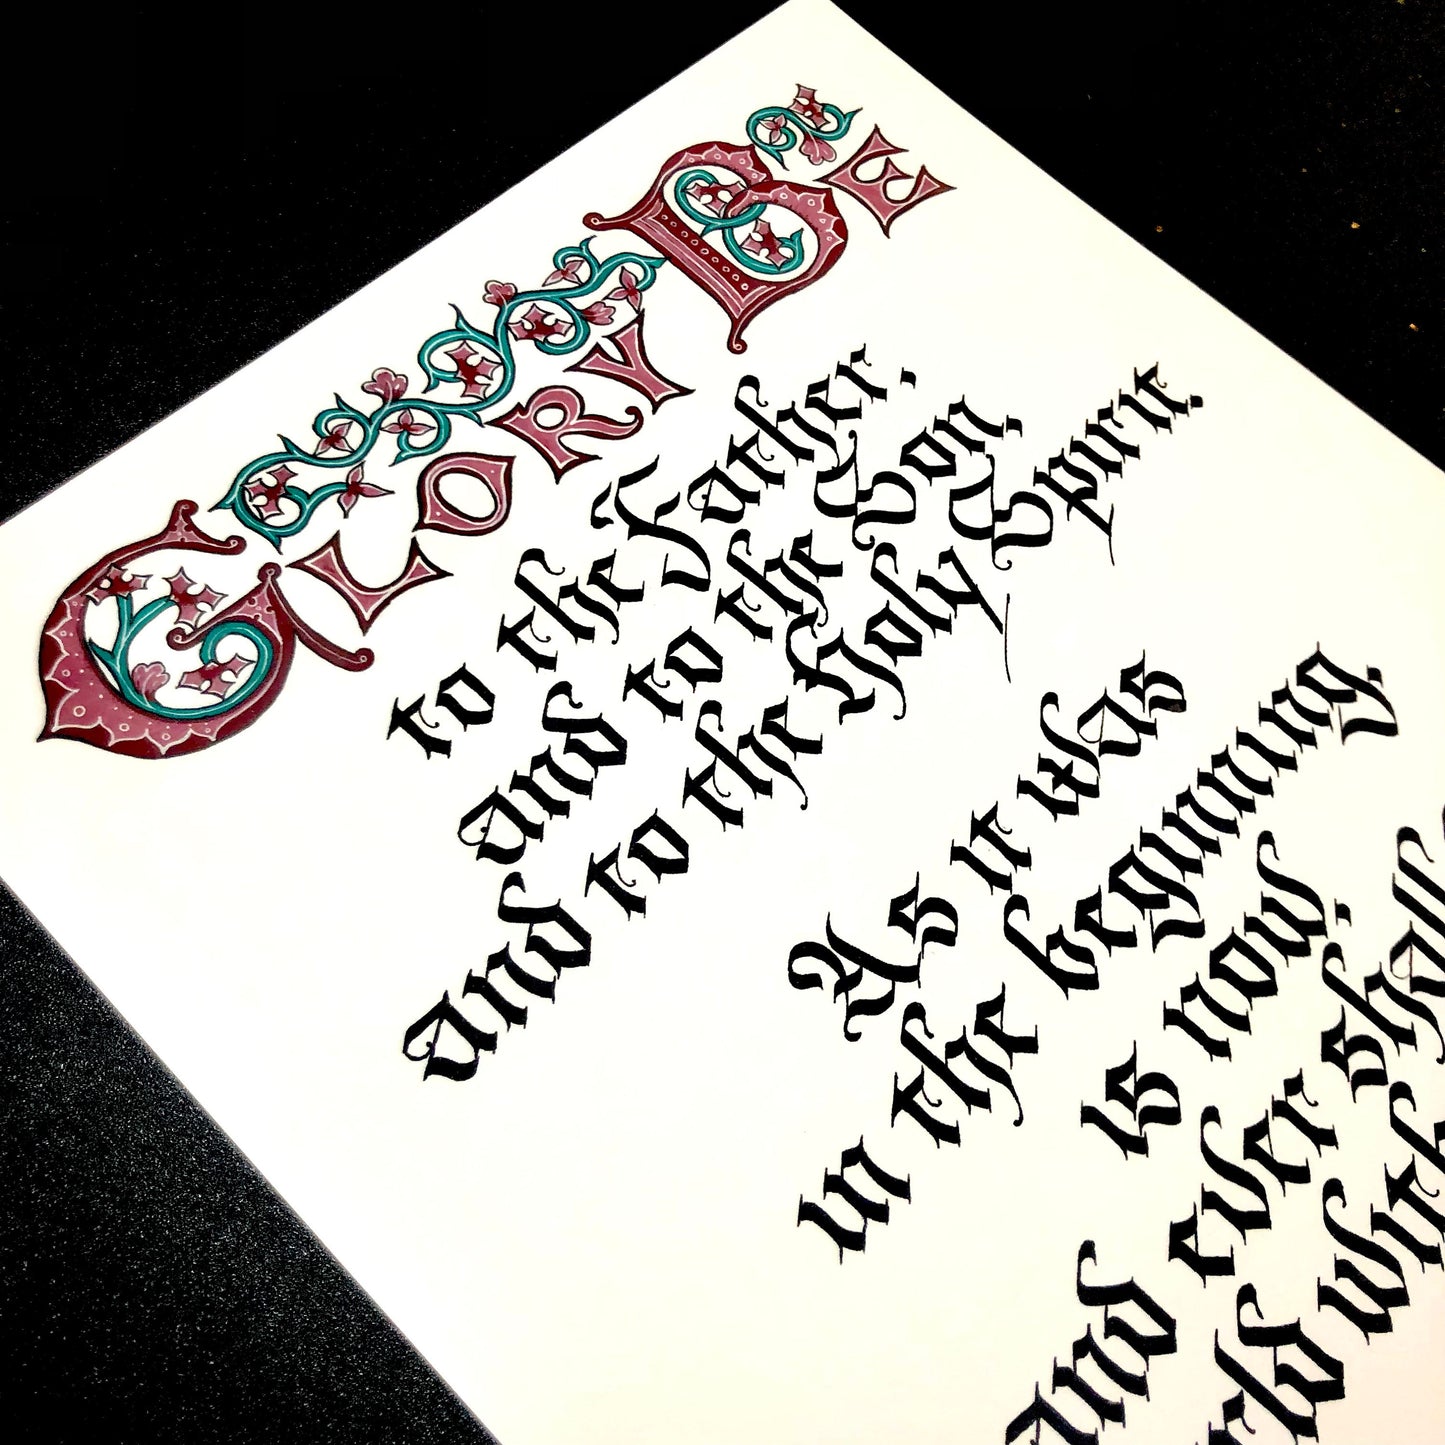 GLORY BE
to the Father,
and to the Son,
and to the Holy Spirit.
As it was
in the beginning,
is now,
and ever shall
world with